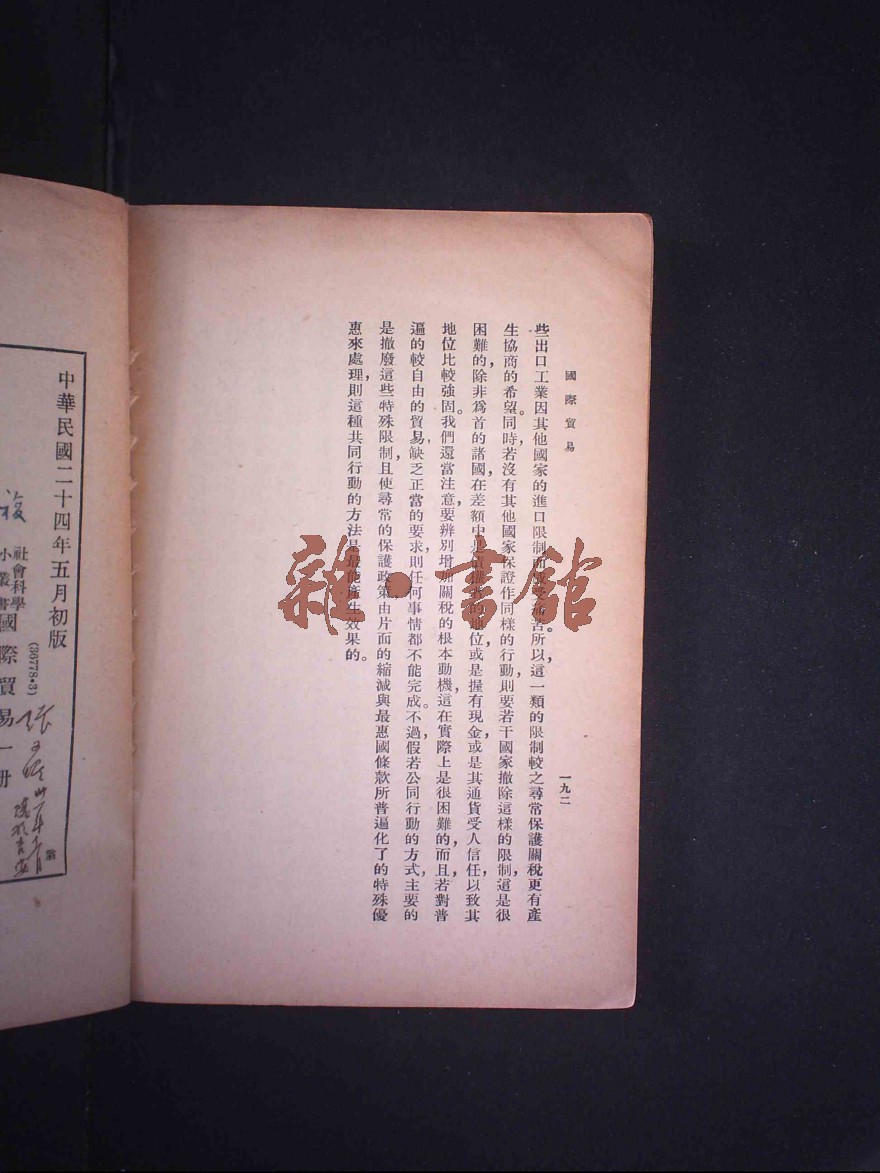 國際貿易
一九二
些出口工業因其他國家的進口限制而感受痛苦。所以，這一類的限制較之尋常保護關稅更有產
生協商的希望。同時，若沒有其他國家保證作同樣的行動，則要若干國家撤除這樣的限制，這是很
困難的，除非爲首的諸國，在差額中是債權者的地位，或是握有現金，或是其通貨受人信任，以致其
地位比較強固。我們還當注意，要辨別增加關稅的根本動機，這在實際上是很困難的，而且，若對普
遍的較自由的貿易，缺乏正當的要求，則任何事情都不能完成。不過，假若公同行動的方式，主要的
是撤廢這些特殊限制，且使尋常的保護政策，由片面的縮減與最惠國條款所普遍化了的特殊優
惠來處理，則這種共同行動的方法是最能產生效果的。
雜·書館
中華民國二十四年五月初版
(36778·3)
社會科學
小叢書
國際貿易一册